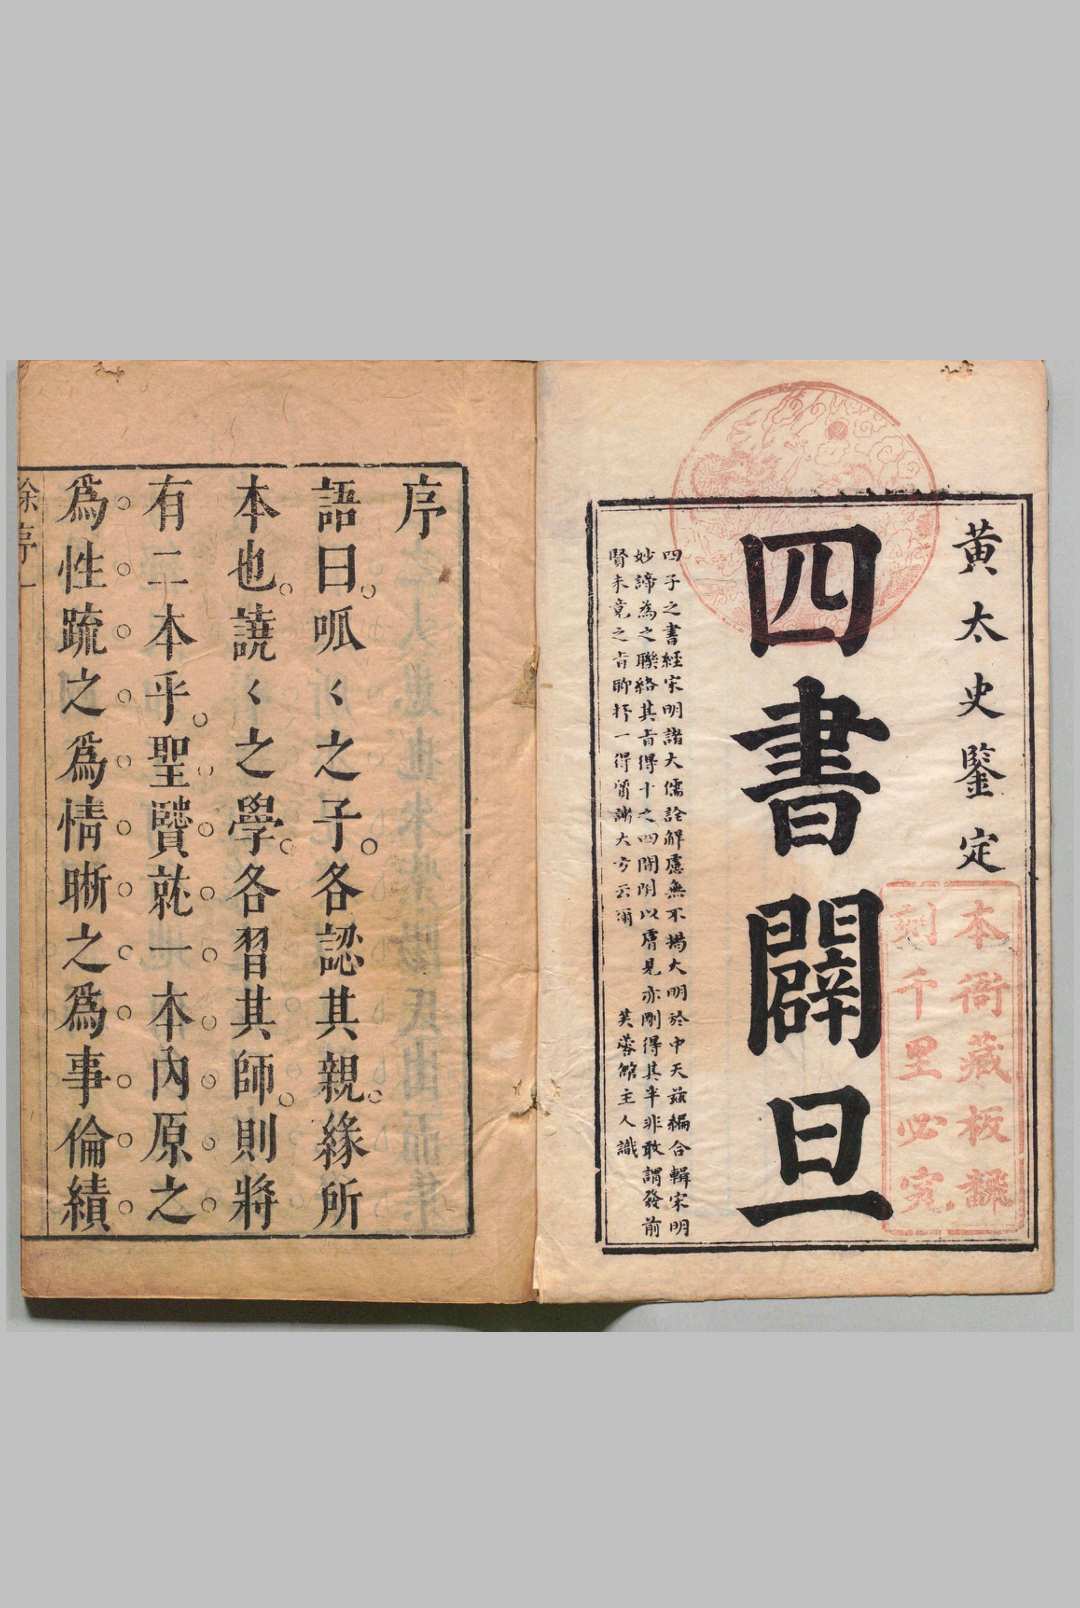 黄太史鑒定
四書闢旦
四子之書經宋明諸大儒詮解慮無不揚大明於中天兹編合輯宋明
妙諦為之聯絡其旨得十之四閒附以膚見亦剛得其半非敢謂發前
賢未竟之旨聊抒一得質諸大方云爾 芙蓉館主人識
本衙藏板翻
刻千里必究
序
語曰呱〻之子各認其親緣所
本也譊〻之學各習其師則將
有二本乎聖贒就一本內原之
為性䟽之為情晣之為事倫績
徐序一